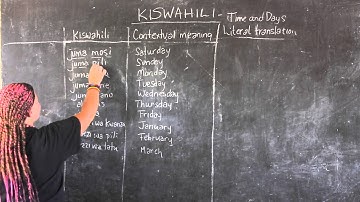 KISWAHILI - Time and Days
Literal translation
Kiswahili Contextual meaning
juma mosi Saturday
juma pili Sunday
juma Monday
juma Tuesday
juma Wednesday
Thursday
Friday
wa kwanza January
wa pili February
wa tatu March